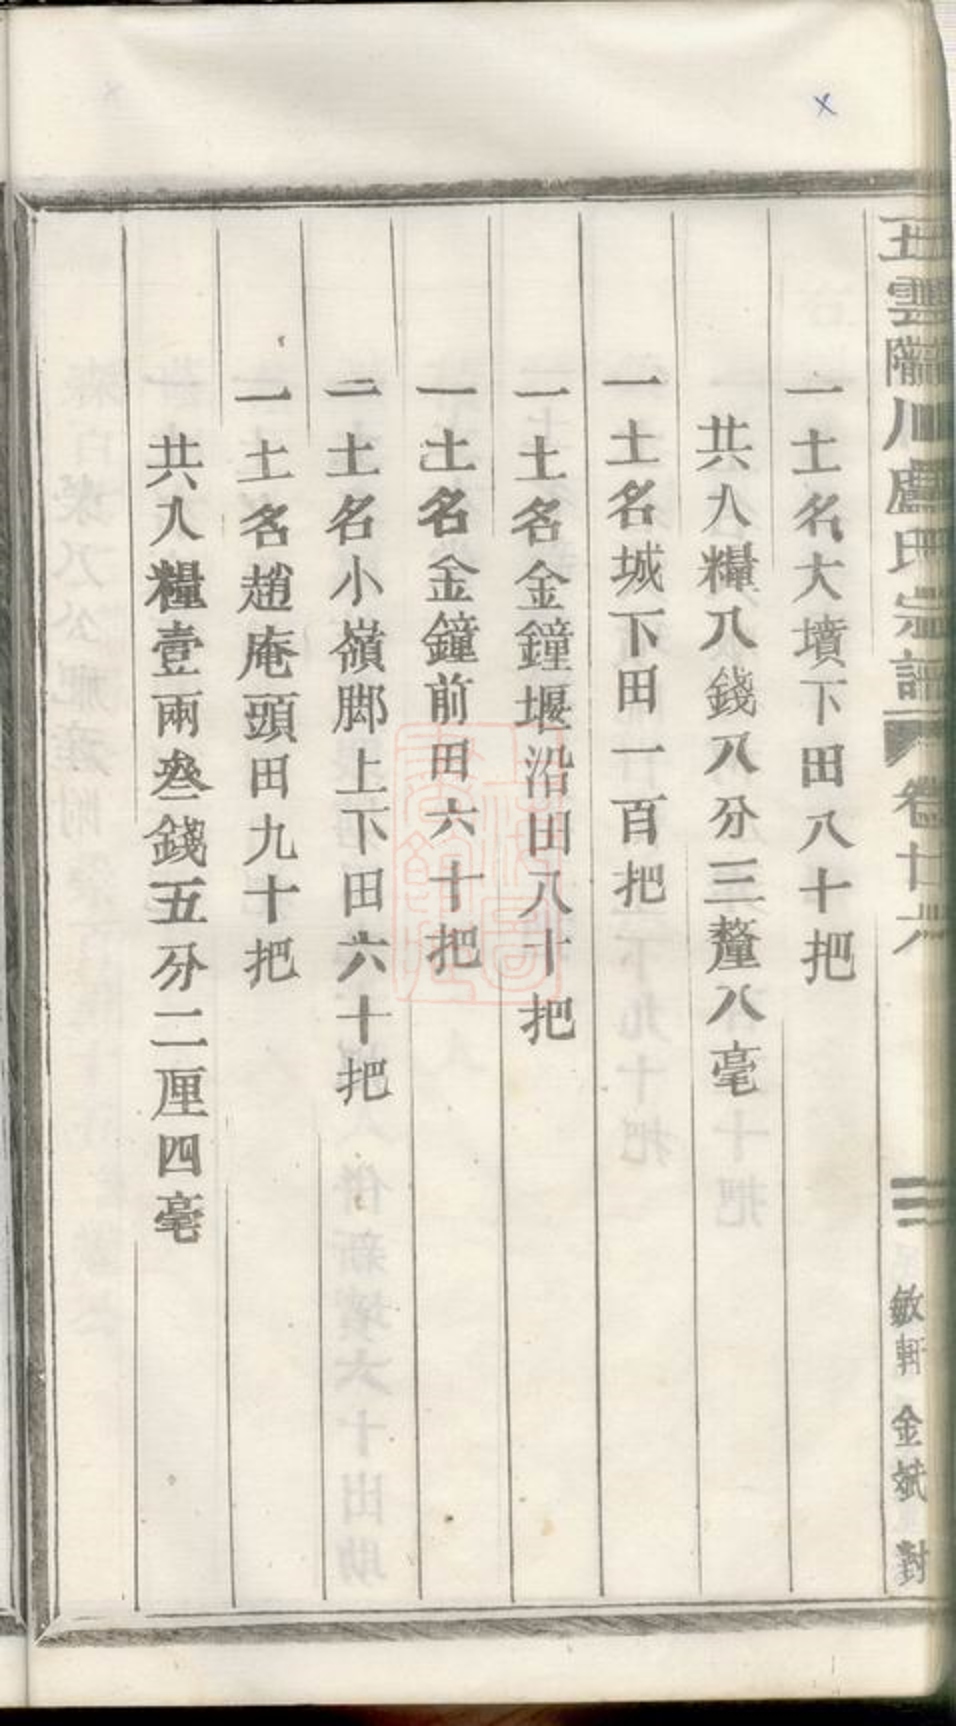 玉雲閣川盧氏宗譜 卷廿六 二 敏軒 金斌 對
一土名大墳下田八十把
共入糧八錢八分三釐八毫
一土名城下田一百把
一土名金鐘堰沿田八十把
一土名金鐘前田六十把
一土名小嶺脚上下田六十把
一土名趙庵頭田九十把
共入糧壹兩叁錢五分二厘四毫